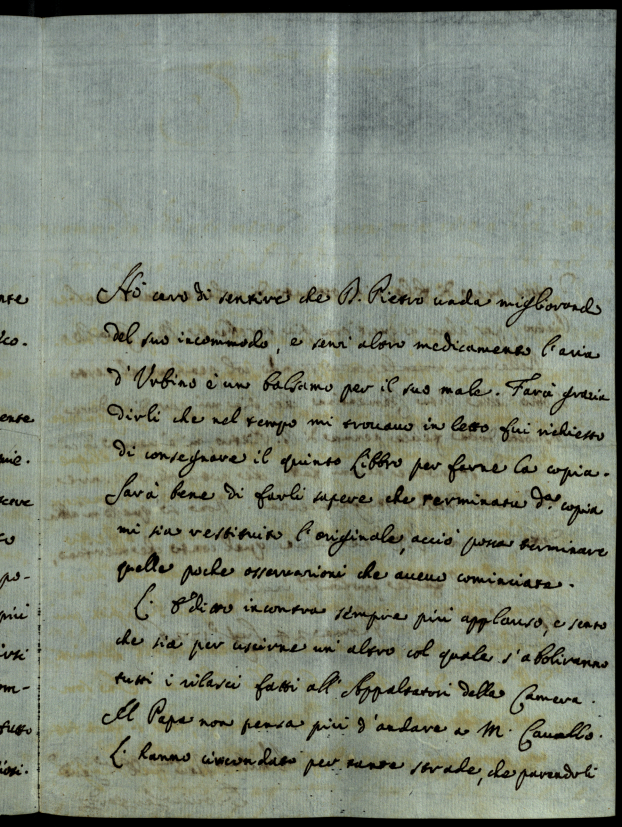 nte
Hò caro di sentire che D. Pietro vada migliorando
del suo incommodo, e senz' altro medicamento l'aria
ico.
d'Urbino è uno balsamo per il suo male. Farà grazia
ente
dirli che nel tempo mi trovavo in letto fui richiesto
mie.
di consegnare il quinto Libbro per farne la copia.
Sarà bene di farli sapere che terminata d.ª copia
mi sia restituito l'originale, acciò possa terminare
po-
quelle poche osservazioni che avevo cominciate.
più
L' Editto incontra sempre più applauso, e sento
che sia per uscirne un' altro col quale s'aboliranno
om-
tutti i rilasci fatti all' Appaltatori della Camera.
tutto
Il Papa non pensa più d'andare a M. Cavallo.
L' hanno circondato per tante strade, che parendoli